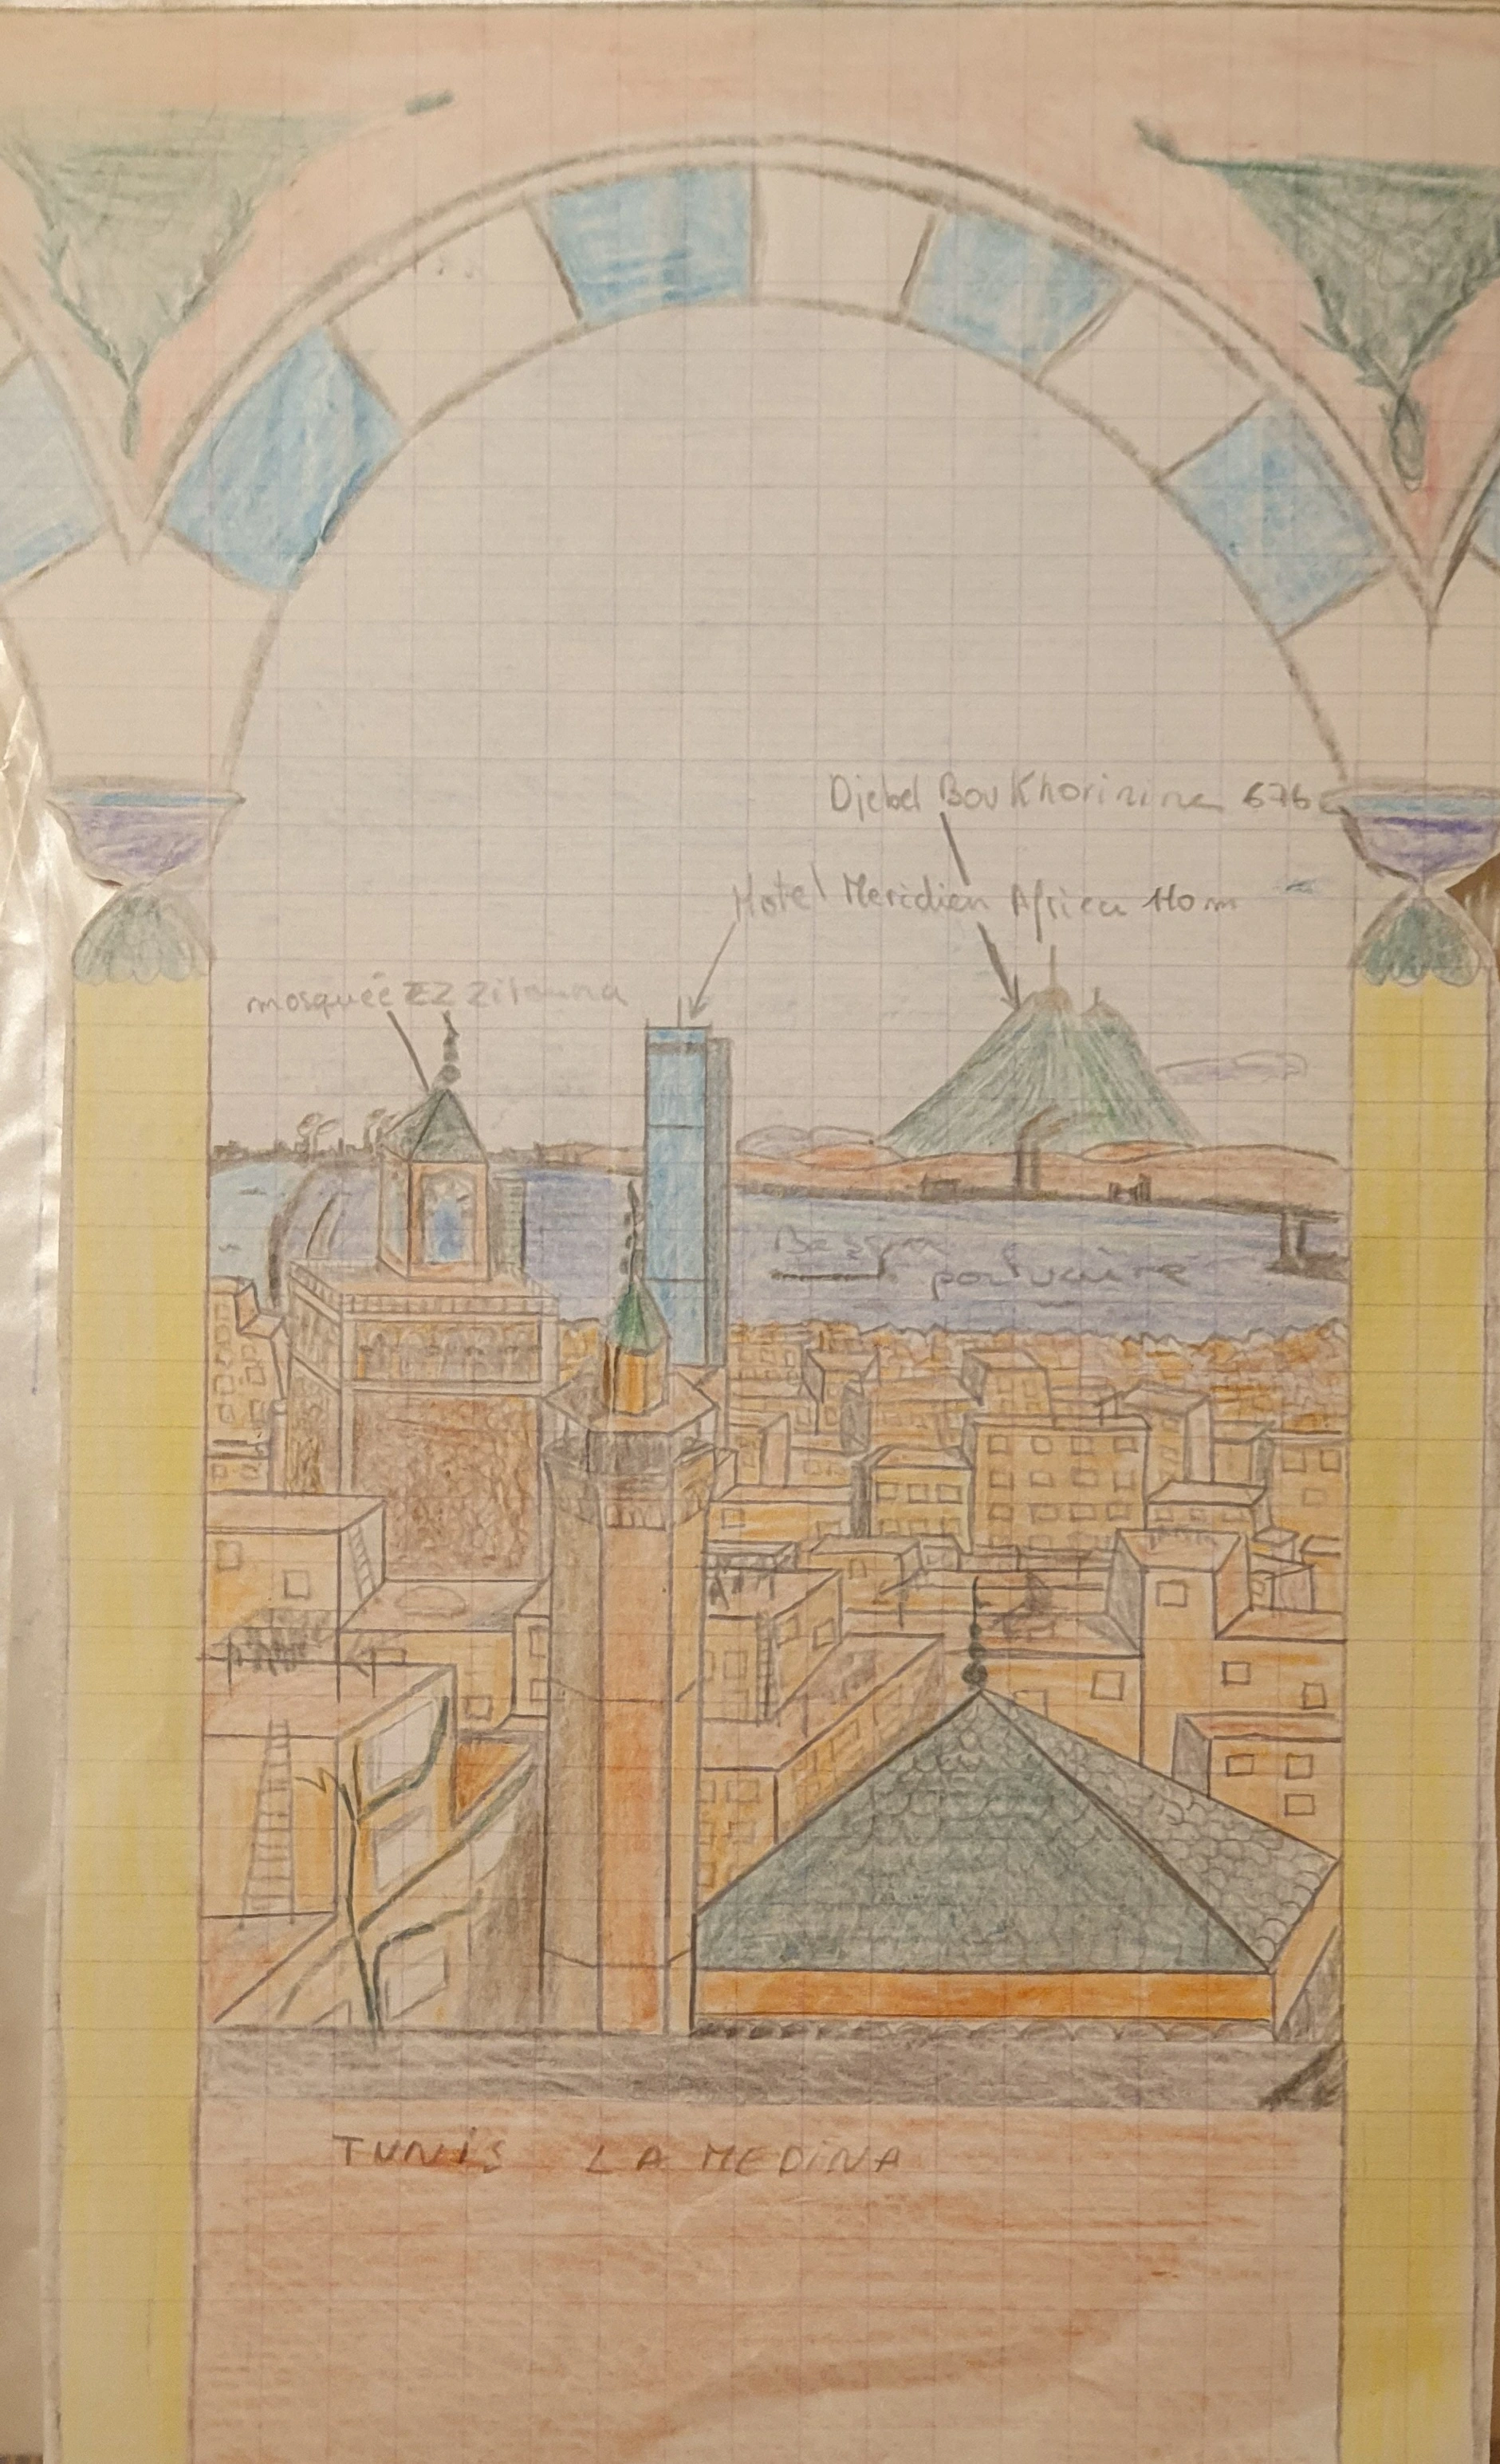 Djebel Bou Khorinina 676
Hotel Meridien Africa 110 m
mosquée EZ Zitouna
Bassin
portuaire
TUNIS LA MEDINA